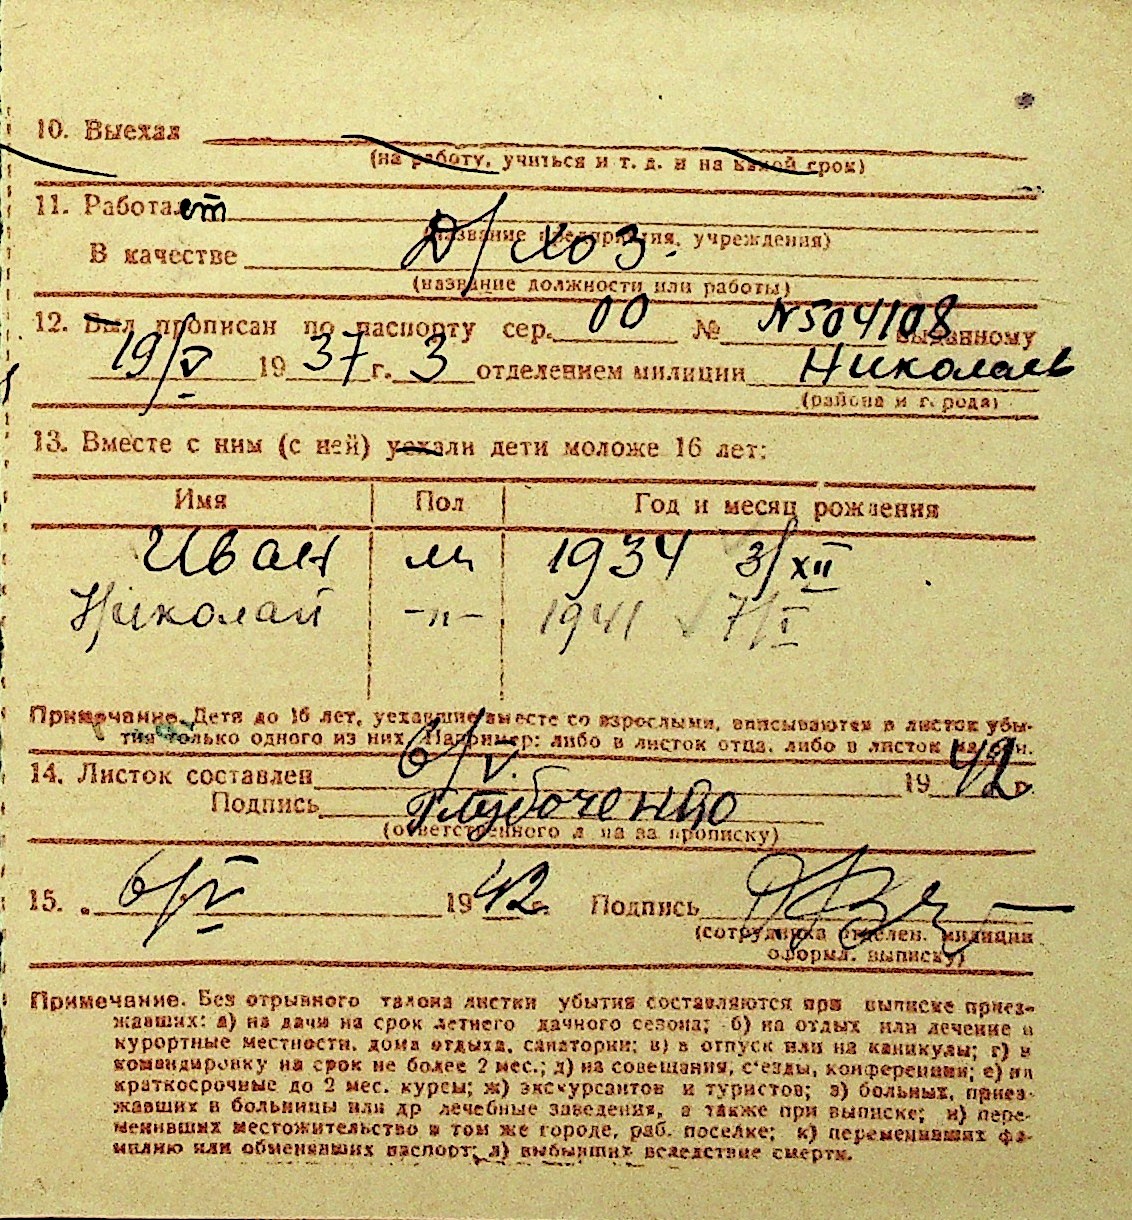 10. Выехал
(на работу, учиться и т. д. и на какой срок)
11. Работает
(название предприятия, учреждения)
В качестве Д/хоз.
(название должности или работы)
12. Был прописан по паспорту сер. 00 № N504108 выданному
19/V 1937 г. 3 отделением милиции Николаев
(района и города)
13. Вместе с ним (с ней) уехали дети моложе 16 лет:
Имя Пол Год и месяц рождения
Иван м 1934 3/XII
Николай -"- 1941 7/I
Примечание. Дети до 16 лет, уехавшие вместе со взрослыми, вписываются в листок убы-
тия только одного из них. Например: либо в листок отца, либо в листок матери.
14. Листок составлен 6/V. 1942 г.
Подпись Глубоченко
(ответственного лица за прописку)
15. 6/V 1942 г. Подпись
(сотрудника отделен. милиции
оформл. выписку)
Примечание. Без отрывного талона листки убытия составляются при выписке приез-
жавших: а) на дачи на срок летнего дачного сезона; б) на отдых или лечение в
курортные местности, дома отдыха, санатории; в) в отпуск или на каникулы; г) в
командировку на срок не более 2 мес.; д) на совещания, с'езды, конференции; е) на
краткосрочные до 2 мес. курсы; ж) экскурсантов и туристов; з) больных, приез-
жавших в больницы или др лечебные заведения, а также при выписке; и) пере-
менивших местожительство в том же городе, раб. поселке; к) переменивших фа-
милию или обменявших паспорт; л) выбывших вследствие смерти.